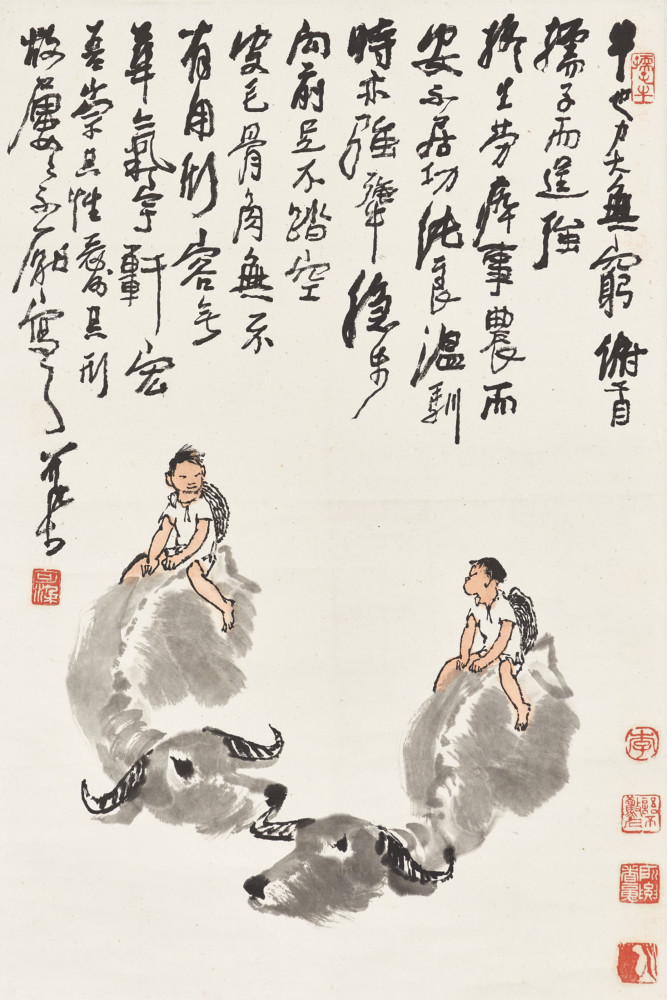 牛也力大無窮俯首
孺子而逞強
終生勞瘁事農而
安不居功純良溫馴
時亦强犟穩步
向前足不踏空
皮毛骨角無不
有用形容无
華氣宇軒宏
吾崇其性愛其形
故屢々不厭寫之
可染
李